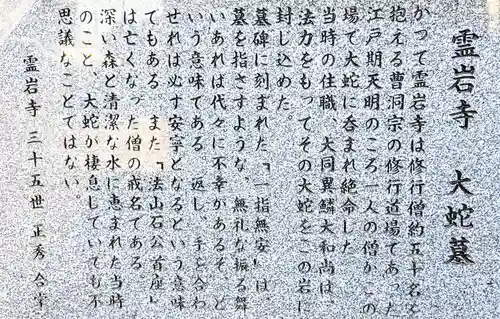 霊岩寺　大蛇墓
かつて霊岩寺は修行僧約五十名を
抱える曹洞宗の修行道場であった
江戸期天明のころ一人の僧が、この
場で大蛇に呑まれ絶命した
当時の住職、大同異鱗大和尚は、
法力をもってその大蛇をこの岩に
封し込めた。
墓碑に刻まれた「一指無安」は、
墓を指さすような、無礼な振る舞
いあれば代々に不幸があるぞ、ど
いう意味である。返し、手を合わ
せれは必す安寧となるという意味
でもある　また「法山石公首座」
は亡くなった僧の戒名である
深い森と清潔な水に恵まれた当時
のこと、大蛇が棲息していても不
思議なことではない。
霊岩寺　三十五世　正秀　合掌